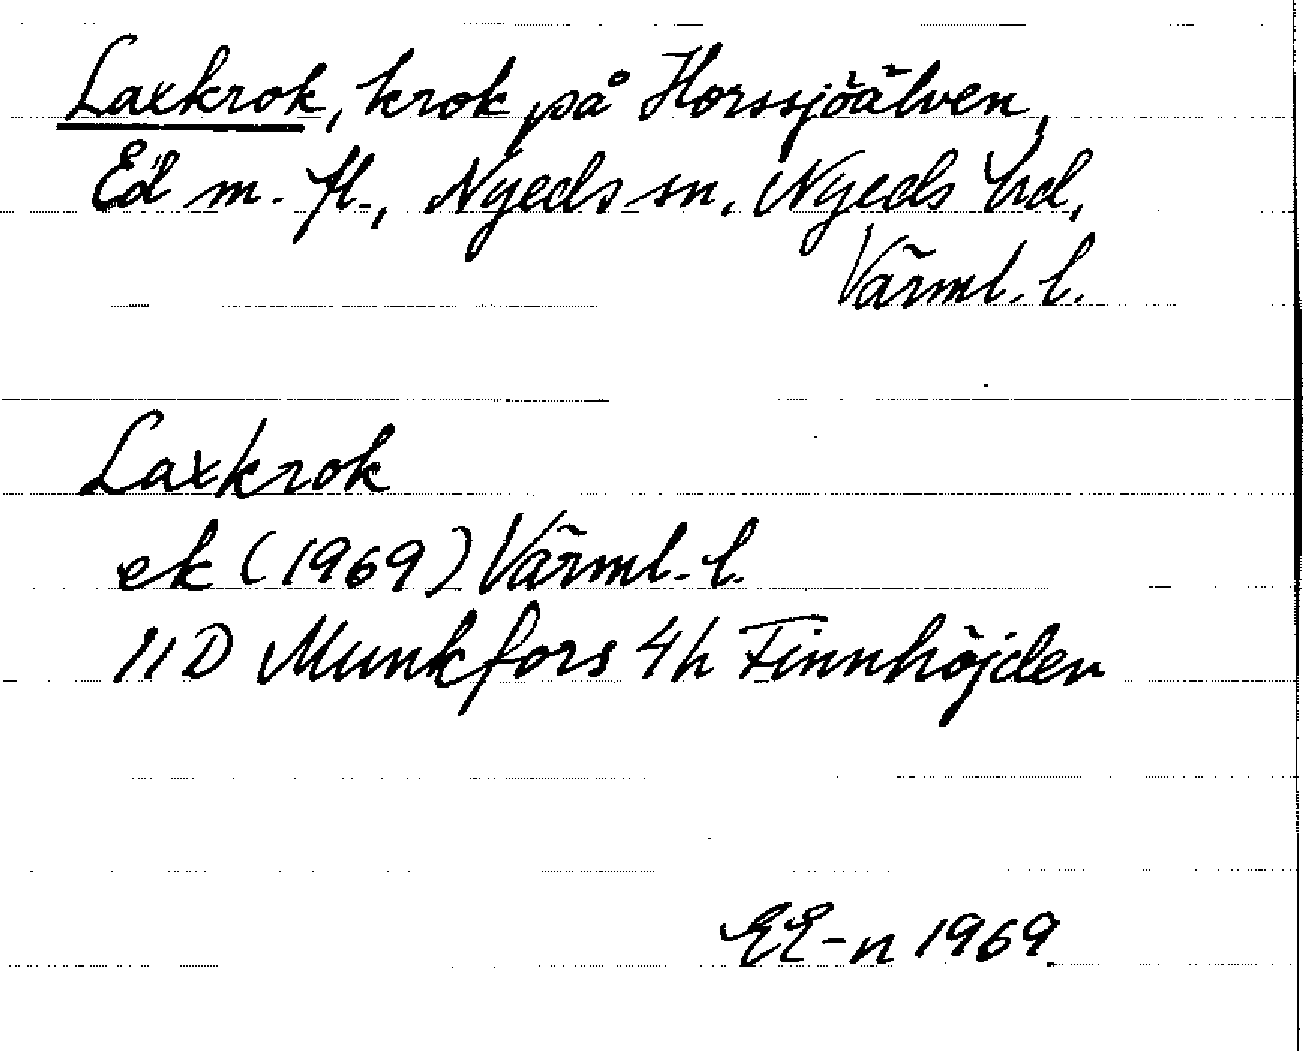 Laxkrok, krok på Horssjöälven,
Ed m. fl., Nyeds sn, Nyeds hd,
Värml. l.
Laxkrok
ek (1969) Värml. l.
11D Munkfors 4h Finnhöjden
EE-n 1969